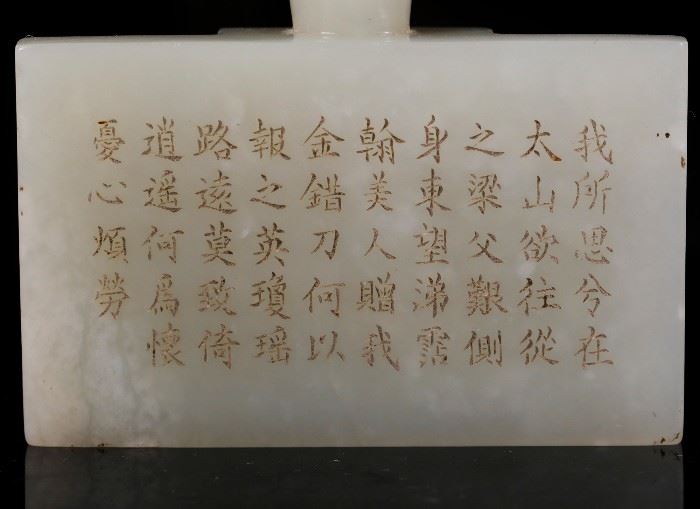 我所思兮在
太山欲往從
之梁父艱側
身東望涕霑
翰美人贈我
金錯刀何以
報之英瓊瑶
路遠莫致倚
逍遥何為懷
憂心煩勞